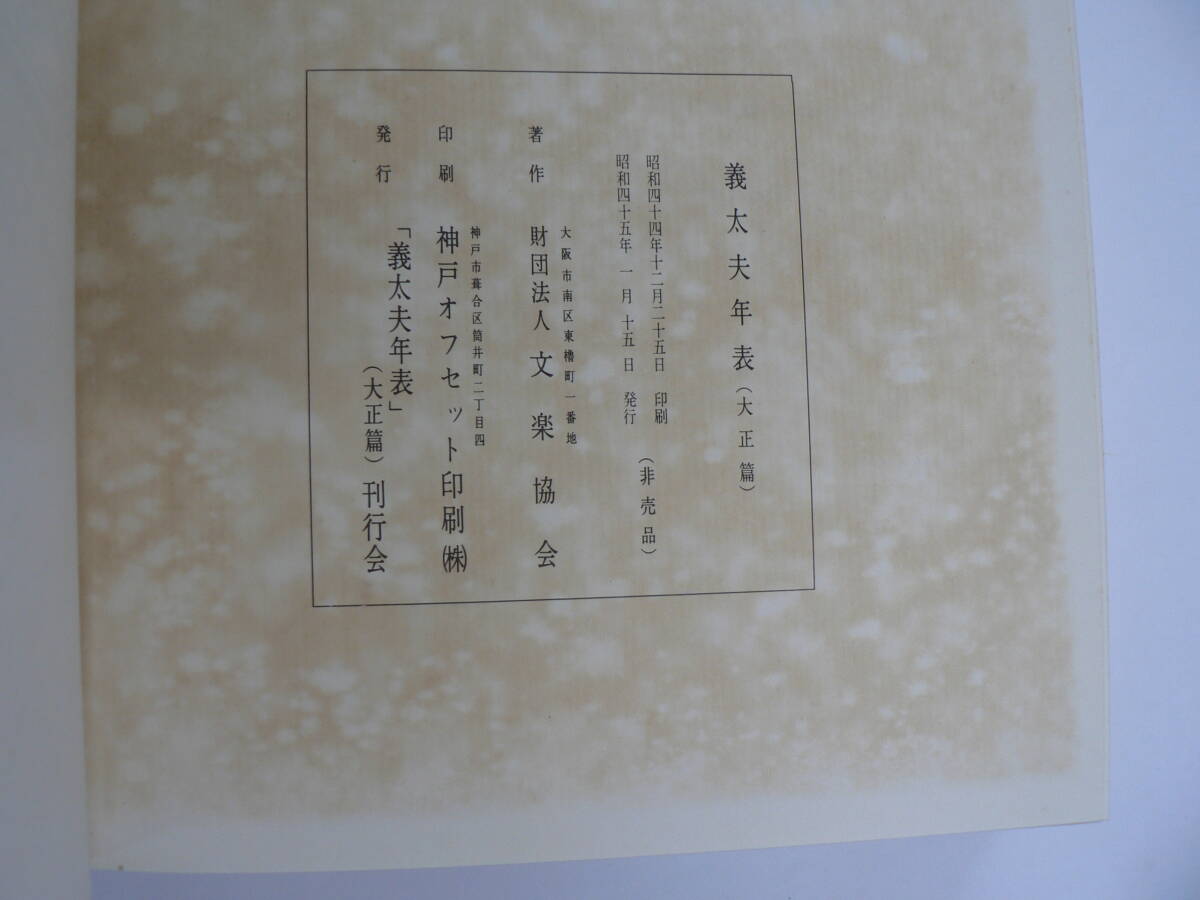 義太夫年表（大正篇）
昭和四十四年十二月二十五日　印刷
昭和四十五年　一月　十五日　発行
（非売品）
著作
大阪市南区東櫓町一番地
財団法人　文楽協会
印刷
神戸市葺合区筒井町二丁目四
神戸オフセット印刷㈱
発行
「義太夫年表」（大正篇）刊行会